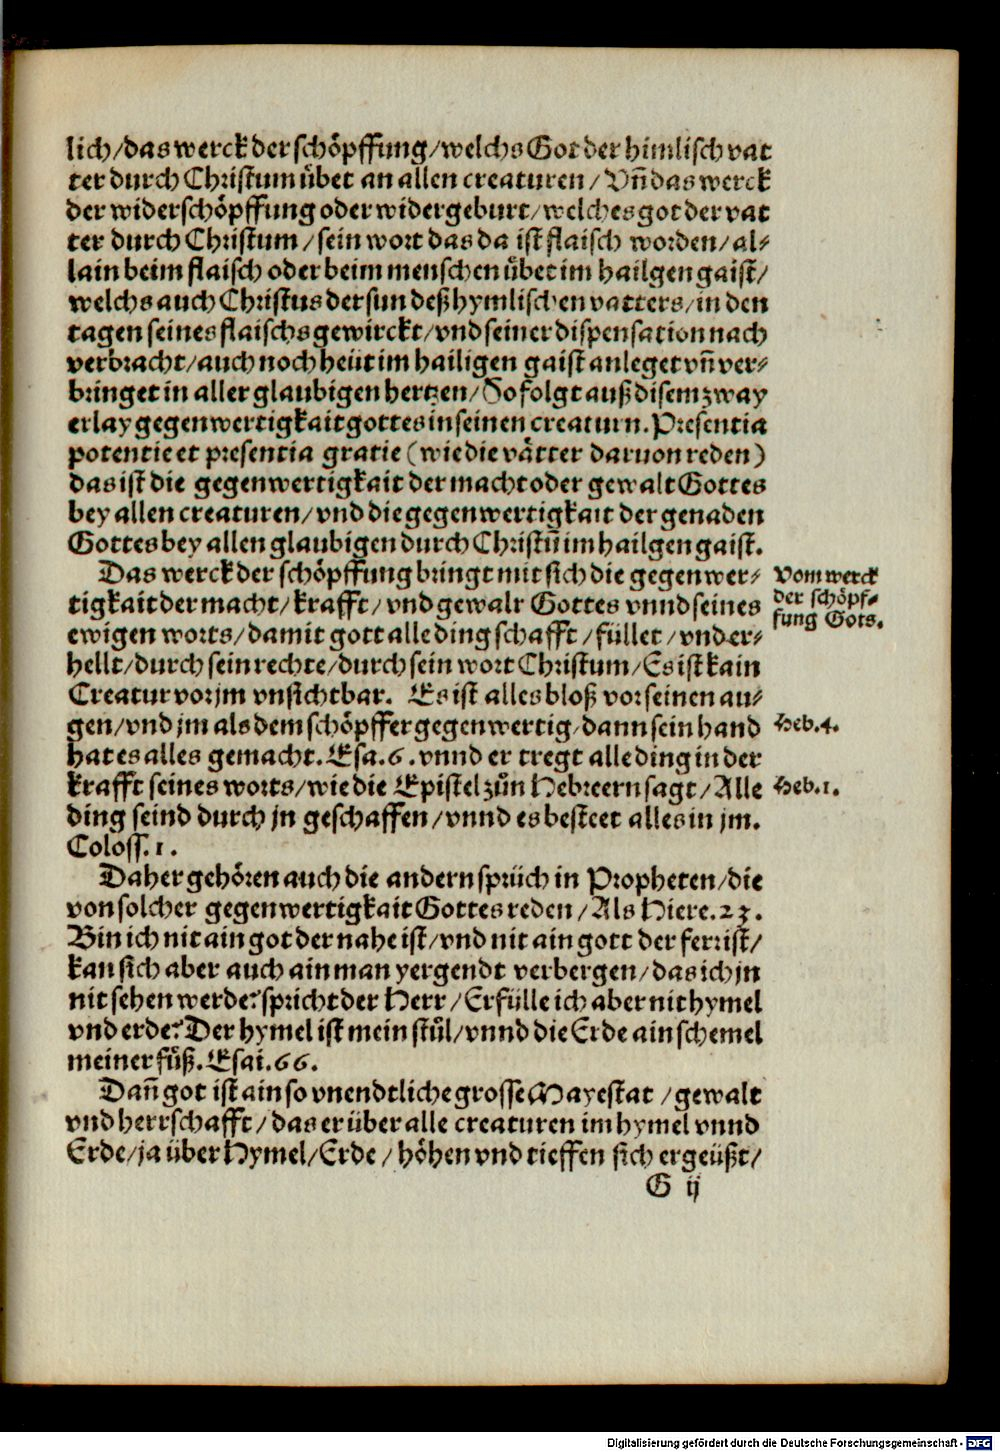 lich/das werck der schöpffung/welchs Got der himlisch vat
ter durch Christum uͤbet an allen creaturen/Vñ das werck
der widerschöpffung oder widergeburt/welches got der vat
ter durch Christum/sein wort das da ist flaisch worden/al⸗
lain beim flaisch oder beim menschen uͤbet im hailgen gaist/
welchs auch Christus der sun deß hymlischen vatters/in den
tagen seines flaischs gewirckt/vnd seiner dispensation nach
verbracht/auch noch heüt im hailigen gaist anleget vñ ver⸗
bringet in aller glaubigen hertzen/So folgt auß disem zway
erlay gegenwertigkait gottes in seinen creaturn. Presentia
potentie et presentia gratie (wie die vaͤtter daruon reden)
das ist die gegenwertigkait der macht oder gewalt Gottes
bey allen creaturen/vnd die gegenwertigkait der genaden
Gottes bey allen glaubigen durch Christū im hailgen gaist.
Das werck der schöpffung bringt mit sich die gegenwer⸗
tigkait der macht/krafft/vnd gewalt Gottes vnnd seines
ewigen worts/damit gott alle ding schafft/füllet/vnd er⸗
hellt/durch sein rechte/durch sein wort Christum/Es ist kain
Creatur vor jm vnsichtbar. Es ist alles bloß vor seinen au⸗
gen/vnd jm als dem schöpffer gegenwertig/dann sein hand
hat es alles gemacht. Esa. 6. vnnd er tregt alle ding in der
krafft seines worts/wie die Epistel zůn Hebreern sagt/Alle
ding seind durch jn geschaffen/vnnd es besteet alles in jm.
Coloss. 1.
Daher gehören auch die andern sprüch in Propheten/die
von solcher gegenwertigkait Gottes reden/Als Hiere. 23.
Bin ich nit ain got der nahe ist/vnd nit ain gott der ferr ist/
kan sich aber auch ain man yergendt verbergen/das ich jn
nit sehen werde? spricht der Herr/Erfülle ich aber nit hymel
vnd erde? Der hymel ist mein stůl/vnnd die Erde ain schemel
meiner fůß. Esai. 66.
Dañ got ist ain so vnendtliche grosse Mayestat/gewalt
vnd herrschafft/das er über alle creaturen im hymel vnnd
Erde/ja über Hymel/Erde/höhen vnd tieffen sich ergeüßt/
G ij
Vom werck
der schöpf⸗
fung Gots.
Heb. 4.
Heb. 1.
Digitalisierung gefördert durch die Deutsche Forschungsgemeinschaft - DFG